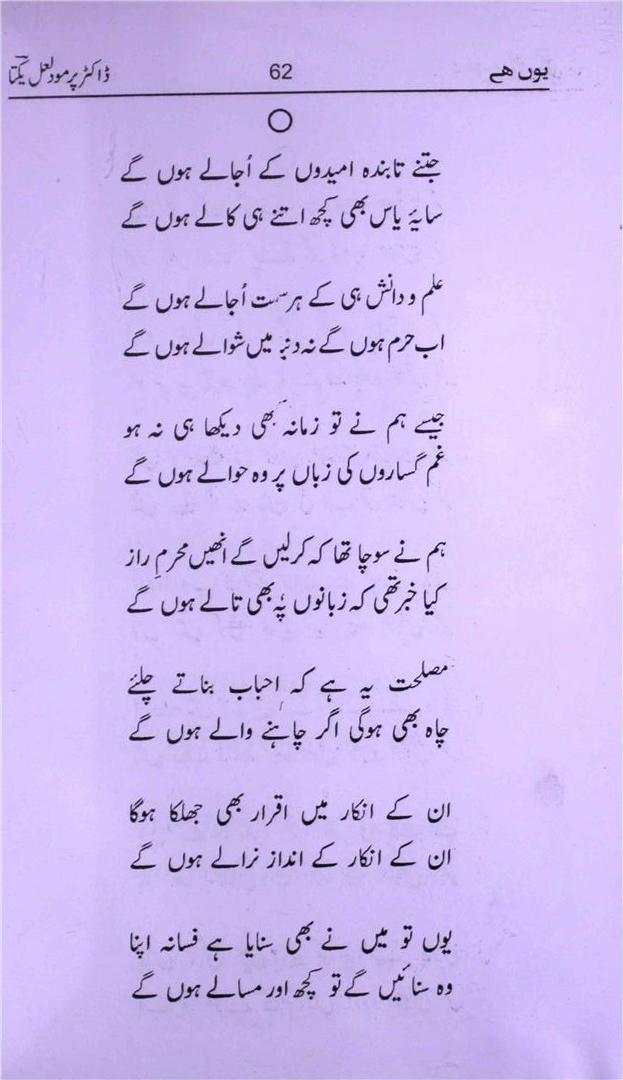 یوں ھے 62 ڈاکٹر پرمود لعل یکتا
جتنے تابندہ امیدوں کے اُجالے ہوں گے
سایۂ یاس بھی کچھ اتنے ہی کالے ہوں گے
علم و دانش ہی کے ہر سمت اُجالے ہوں گے
اب حرم ہوں گے نہ دنیا میں شوالے ہوں گے
جیسے ہم نے تو زمانہ بھی دیکھا ہی نہ ہو
غم گساروں کی زباں پر وہ حوالے ہوں گے
ہم نے سوچا تھا کہ کرلیں گے انھیں محرمِ راز
کیا خبر تھی کہ زبانوں پہ بھی تالے ہوں گے
مصلحت یہ ہے کہ احباب بناتے چلئے
چاہ بھی ہوگی اگر چاہنے والے ہوں گے
ان کے انکار میں اقرار بھی جھلکا ہوگا
ان کے انکار کے انداز نرالے ہوں گے
یوں تو میں نے بھی سنایا ہے فسانہ اپنا
وہ سنائیں گے تو کچھ اور مسالے ہوں گے